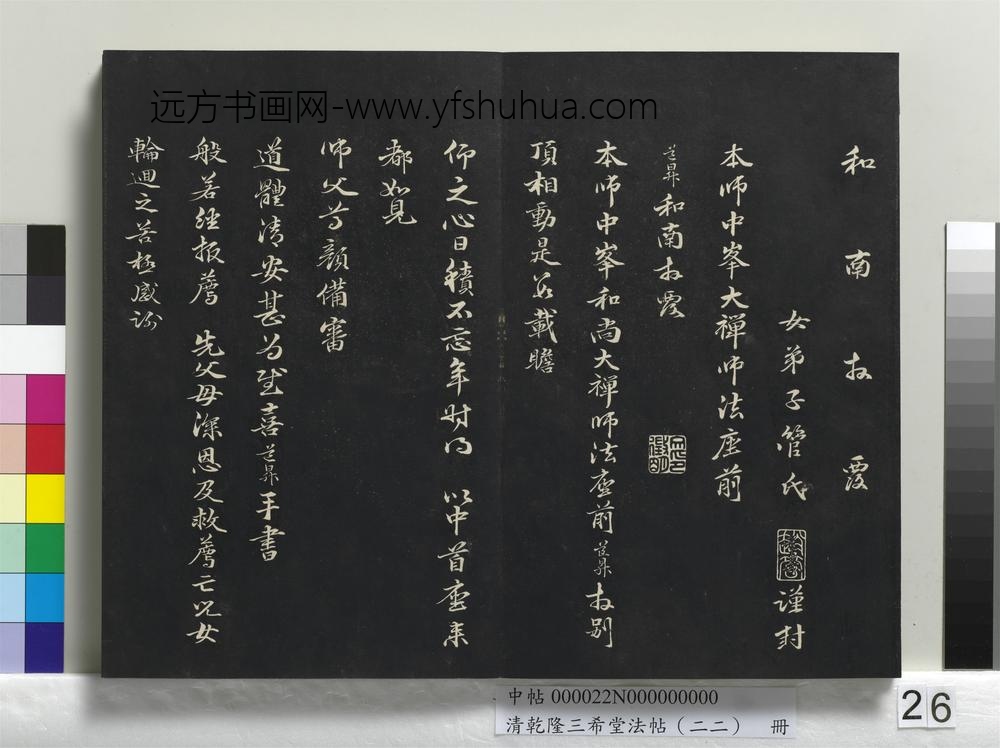 远方书画网-www.yfshuhua.com
和南拜覆
女弟子管氏 謹封
本師中峯大禪師法座前
道昇 和南拜覆
本師中峯和尚大禪師法座前 道昇 拜别
頂相動是數載瞻
仰之心日積不忘年时得 以中首座来
都如見
師父尊顏備審
道體清安甚为慰喜 道昇 手書
般若經报薦 先父母深恩及救薦亡兒女
輪迴之苦極感謝
中帖 000022N000000000
清乾隆三希堂法帖（二二） 冊
26